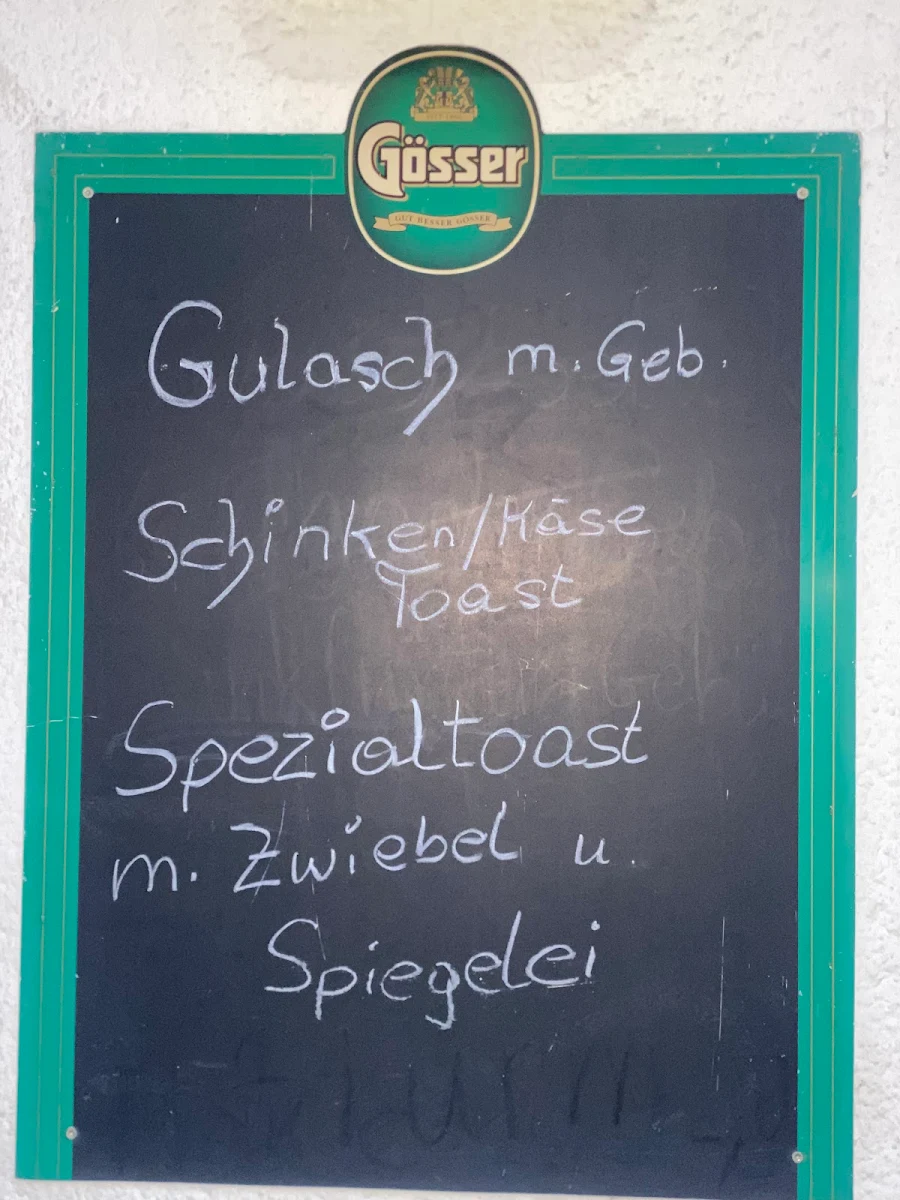 Gösser
GUT BESSER GÖSSER
Gulasch m. Geb.
Schinken/Käse
Toast
Spezialtoast
m. Zwiebel u.
Spiegelei